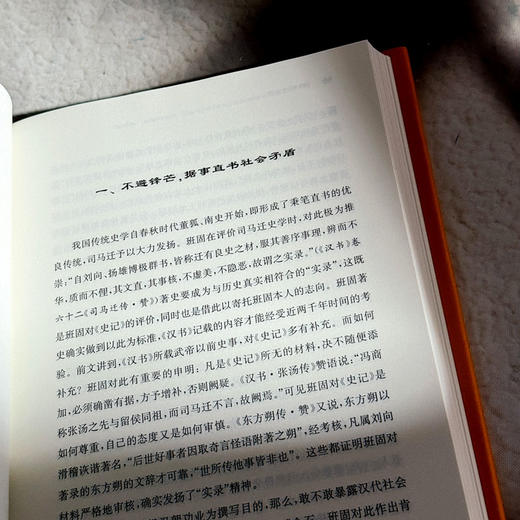 一、不避锋芒，据事直书社会矛盾
我国传统史学自春秋时代董狐、南史开始，即形成了秉笔直书的优
良传统，司马迁予以大力发扬。班固在评价司马迁史学时，对此极为推
崇：“自刘向、扬雄博极群书，皆称迁有良史之材，服其善序事理，辨而不
华，质而不俚，其文直，其事核，不虚美，不隐恶，故谓之实录。”（《汉书》卷
六十二《司马迁传·赞》）著史要成为与历史真实相符合的“实录”，这既
是班固对《史记》的评价，同时也是借此以寄托班固本人的志向。班固著
史确实做到以此为标准，《汉书》记载的内容才能经受近两千年时间的考
验。前文讲到，《汉书》所载武帝以前史事，对《史记》多有补充。而如何
补充？班固对此有重要的申明：凡是《史记》所无的材料，决不随便添
加，必须确凿有据，方予增补，否则阙疑。《汉书·张汤传》赞语说：“冯商
称张汤之先与留侯同祖，而司马迁不言，故阙焉。”可见班固对《史记》是
如何尊重，自己的态度又是如何审慎。《东方朔传·赞》又说，东方朔以
滑稽诙谐著名，“后世好事者因取奇言怪语附著之朔”，经考核，凡属刘向
著录的东方朔的文辞才可靠，“世所传他事皆非也”。这些都证明班固对
材料严格地审核，确实发扬了“实录”精神。
功业为撰写目的，那么，敢不敢暴露汉代社会
班固对此作出肯